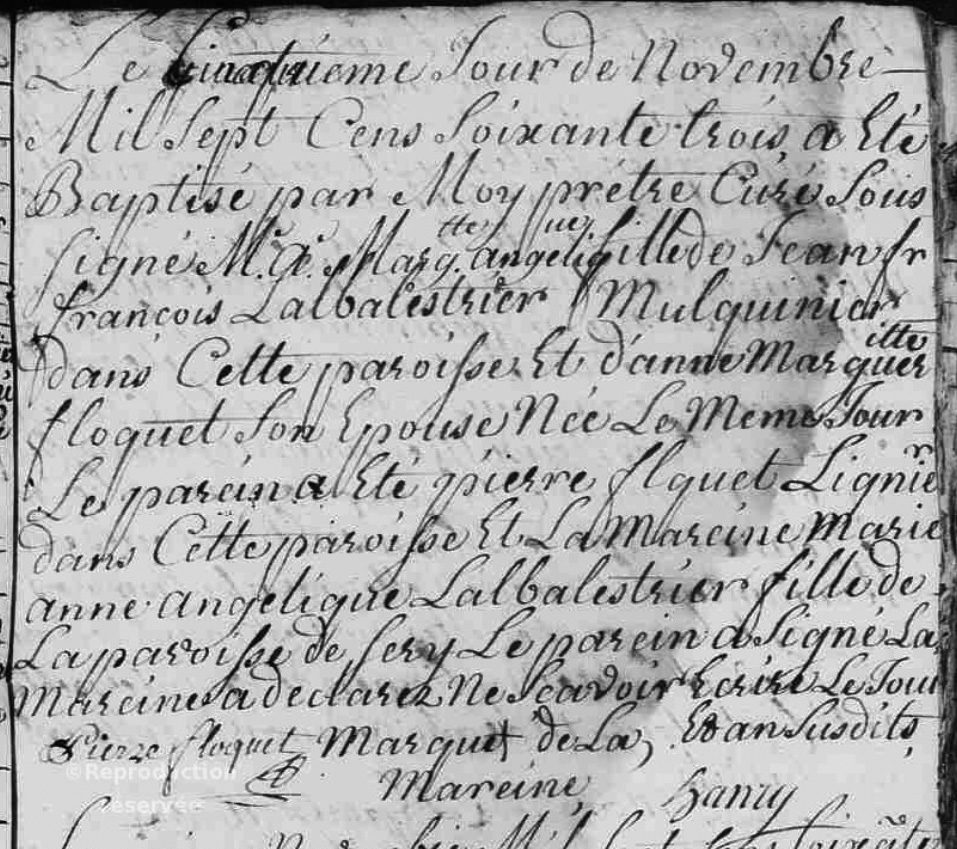 Le Cinquiéme Jour de Novembre
Mil Sept Cens Soixante trois a Eté
Baptisé par Moy prétre Curé Sous
signé M. A. Marg.tte angeliq.ue fille de Jean fr
françois Lalbalestrier Mulquinier
dans Cette paroisse Et d'anne Margueritte
floquet Son Epouse Née Le Meme Jour
Le parein a Eté pierre flquet Lignier
dans Cette paroisse Et La Mareine Marie
anne angelique Lalbalestrier fille de
La paroisse de Sery Le parein a Signé La
Mareine a declarez Ne Scavoir Ecrire Le Jour
Et an Susdits
Pierre floquet Marque de La
Mareine
©Reproduction
réservée